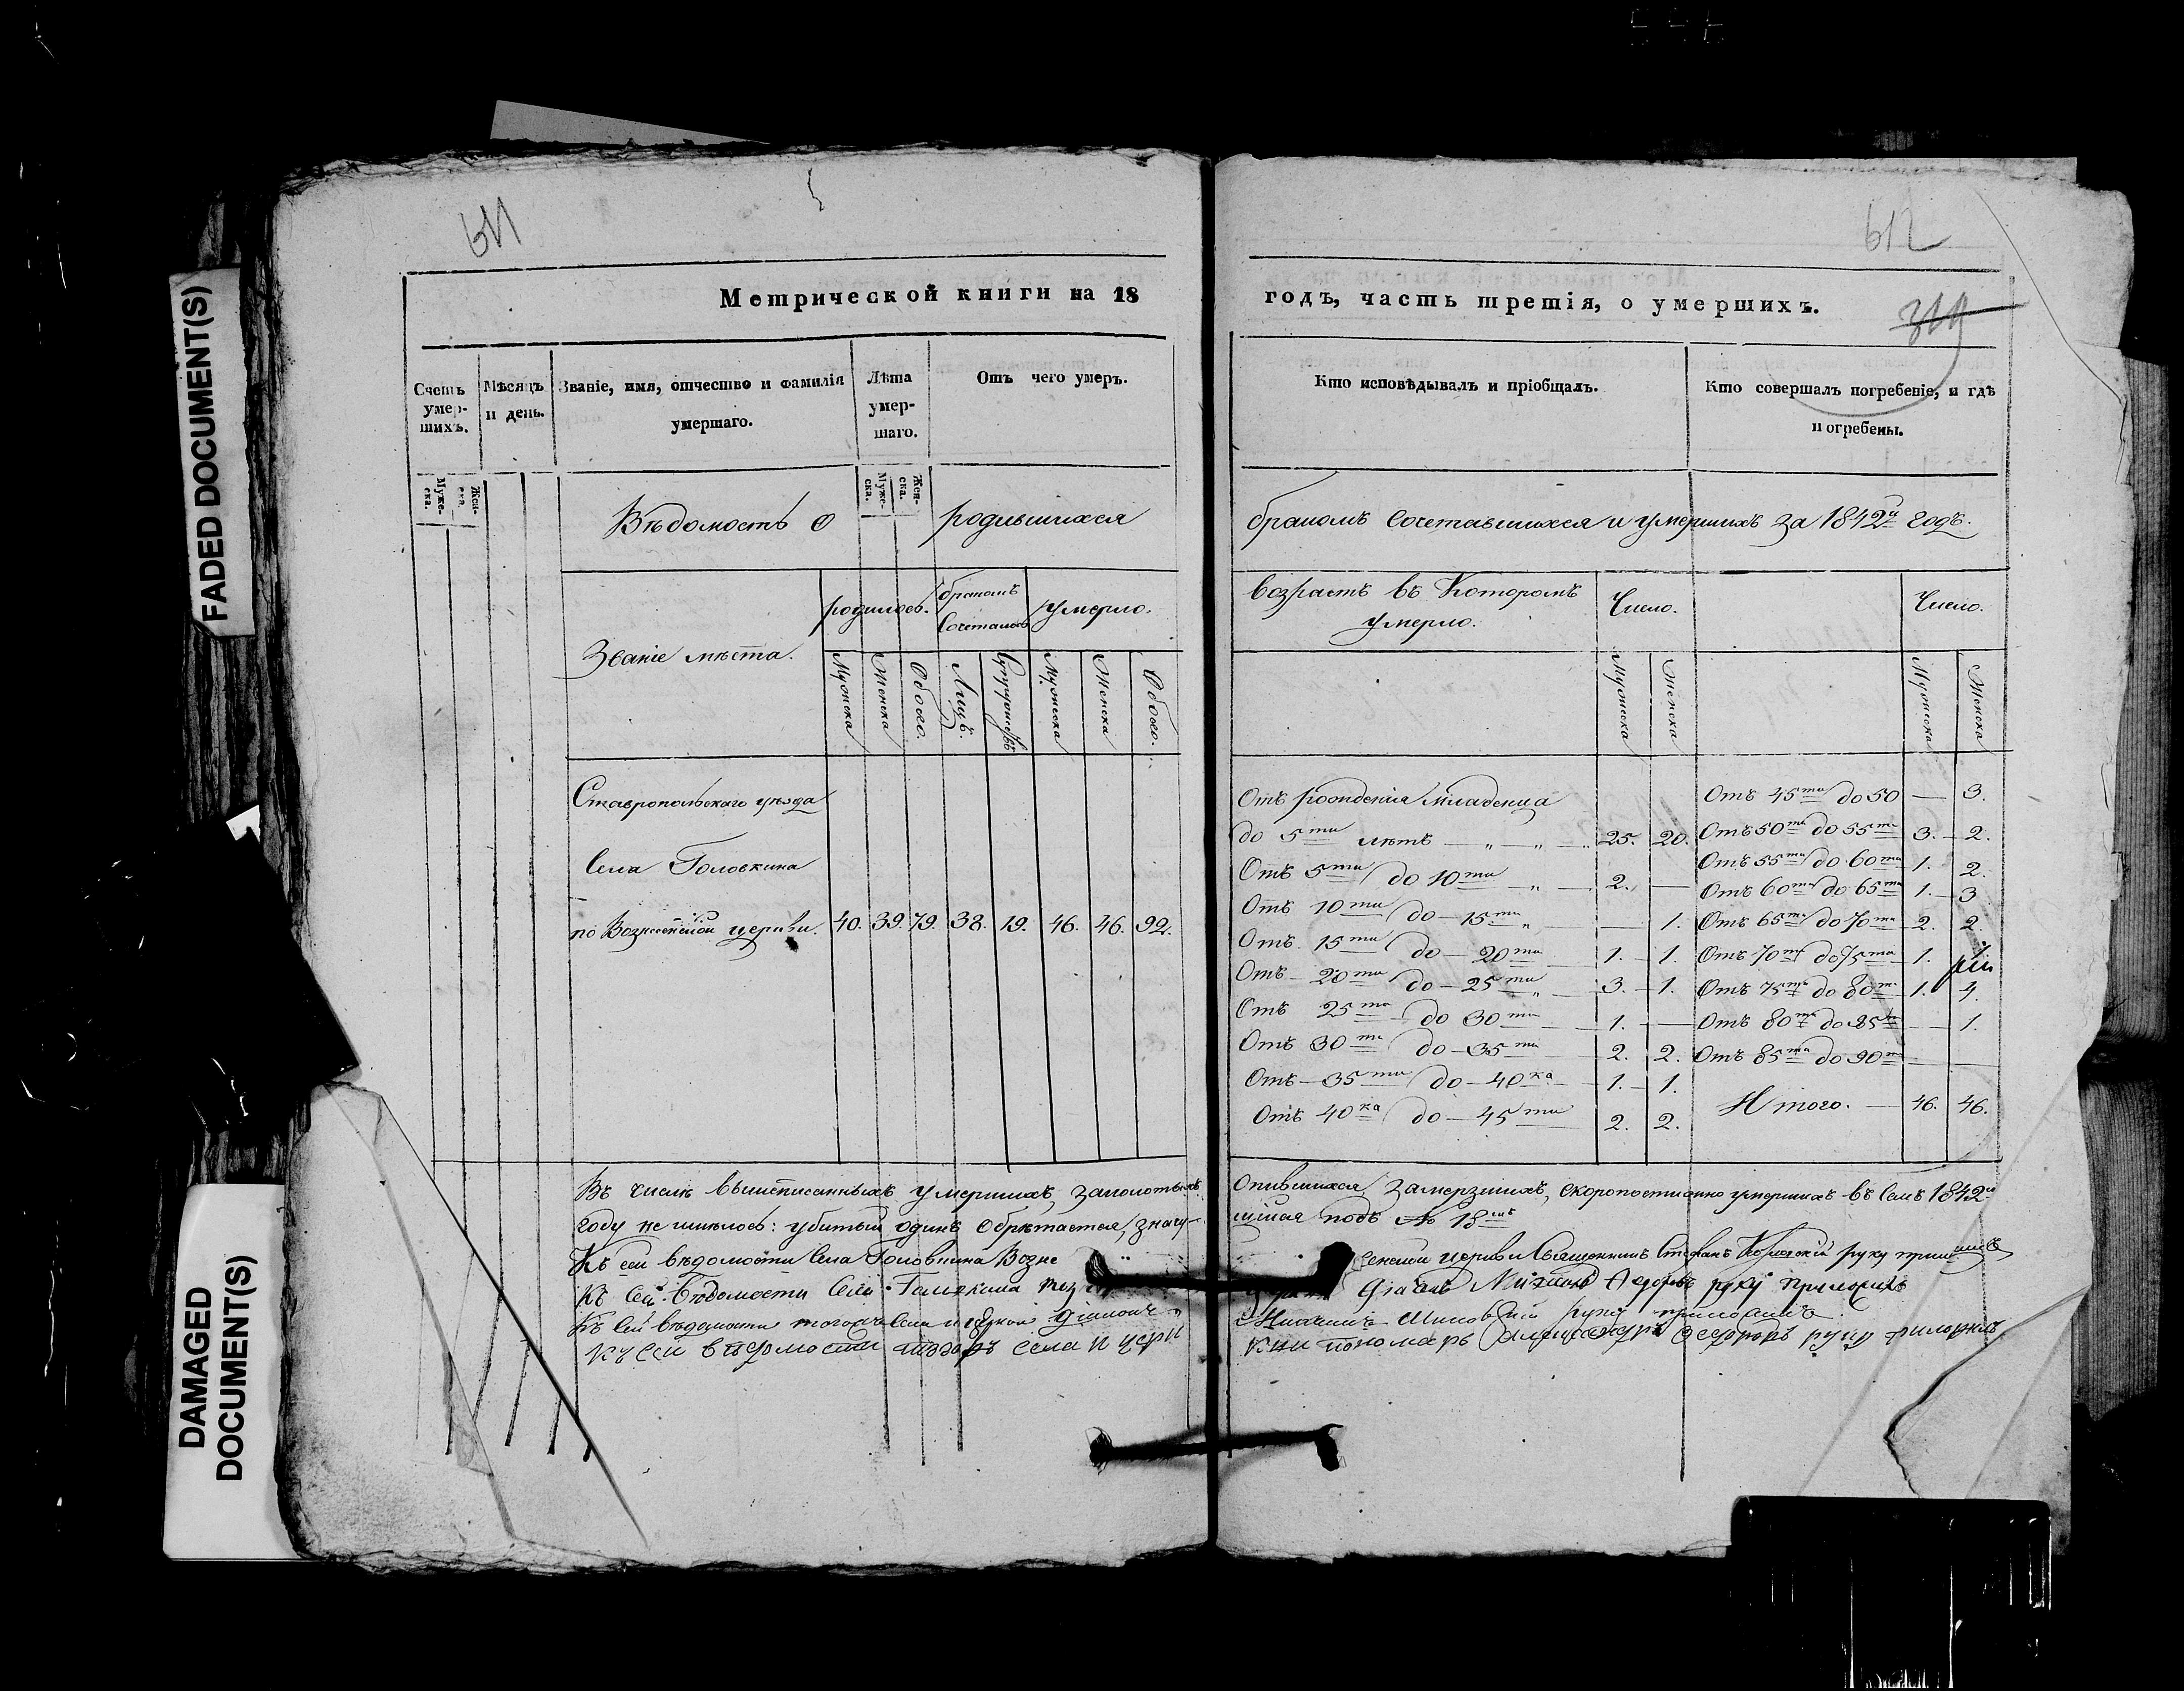 FADED DOCUMENT(S)
DAMAGED
DOCUMENT(S)
611
Метрической книги на 18
Счетъ умер-шихъ.
Мѣсяцъ и день.
Званіе, имя, отчество и фамилія умершаго.
Лѣта умер-шаго.
Отъ чего умеръ.
Муже-ска.
Жен-ска.
Муже-ска.
Жен-ска.
Вѣдомость о родившихся
Званіе мѣста.
родилось.
бракомъ сочеталось
умерло.
Мужеска
Женска
Обоего.
Лицъ.
Супружествъ
Мужеска
Женска
Обоего.
Ставропольскаго уѣзда
Села Головкина
по Вознесенской церкви. 40. 39. 79. 38. 19. 46. 46. 92.
Въ числѣ вышеписанныхъ умершихъ,
году не имѣлось: убитый одинъ обрѣтается, знач-
Къ сей вѣдомости села Головкина Возне
Къ сей вѣдомости села Головкина
Къ сей вѣдомости тогожъ села и церкви
къ сей вѣдомости тогожъ села и церк
612
319
годъ, часть третія, о умершихъ.
Кто исповѣдывалъ и пріобщалъ.
Кто совершалъ погребеніе, и гдѣ погребены.
бракомъ сочетавшихся и умершихъ за 1842й годъ.
возрастъ въ которомъ умерло.
Число.
Число.
Мужеска
Женска
Мужеска
Женска
Отъ рожденія младенца
до 5ти лѣтъ — „ — „ — 25. 20.
Отъ 5ти до 10ти — „ — 2. —
Отъ 10ти до — 15ти „ — — 1.
Отъ 15ти до — 20ти — 1. — 1.
Отъ — 20ти до — 25ти „ — 3. — 1.
Отъ 25ти — до 30ти — 1. —
Отъ 30ти до — 35ти — 2. 2.
Отъ — 35ти до — 40ка — 1. — 1.
Отъ 40ка до — 45ти 2. 2.
Отъ 45ти до 50 — 3.
Отъ 50ти до 55ти 3. — 2.
Отъ 55ти до 60ти 1. 2.
Отъ 60ти до 65ти 1. — 3
Отъ 65ти до 70ти 2. 2.
Отъ 70ти до 75ти 1.
Отъ 75ти до 80ти 1. 4.
Отъ 80ти до 85ти — 1.
Отъ 85ти до 90ти — —
Итого. — 46. 46.
Опившихся, замерзшихъ, скоропостижно умершихъ въ семъ 1842м
щійся подъ № 18мъ
сенской церкви Священникъ Стефанъ руку приложилъ
руку приложилъ
руку приложилъ
кви пономарь Александръ Федоровъ руку приложилъ